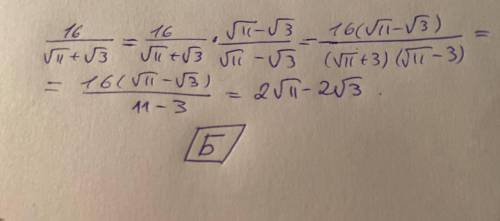 16/(√11+√3) = 16/(√11+√3) · (√11-√3)/(√11-√3) = 16(√11-√3)/((√11+3)(√11-3)) =
= 16(√11-√3)/(11-3) = 2√11-2√3.
Б